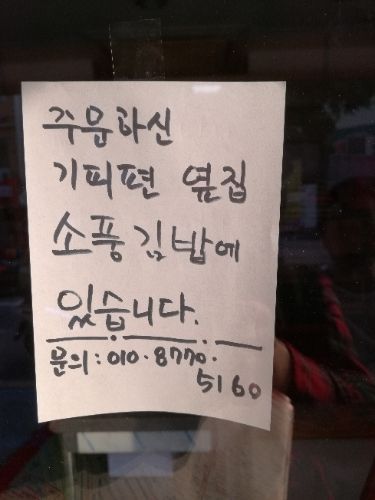 주문하신
기피편 옆집
소풍김밥에
있습니다.
문의: 010·8770·
5160